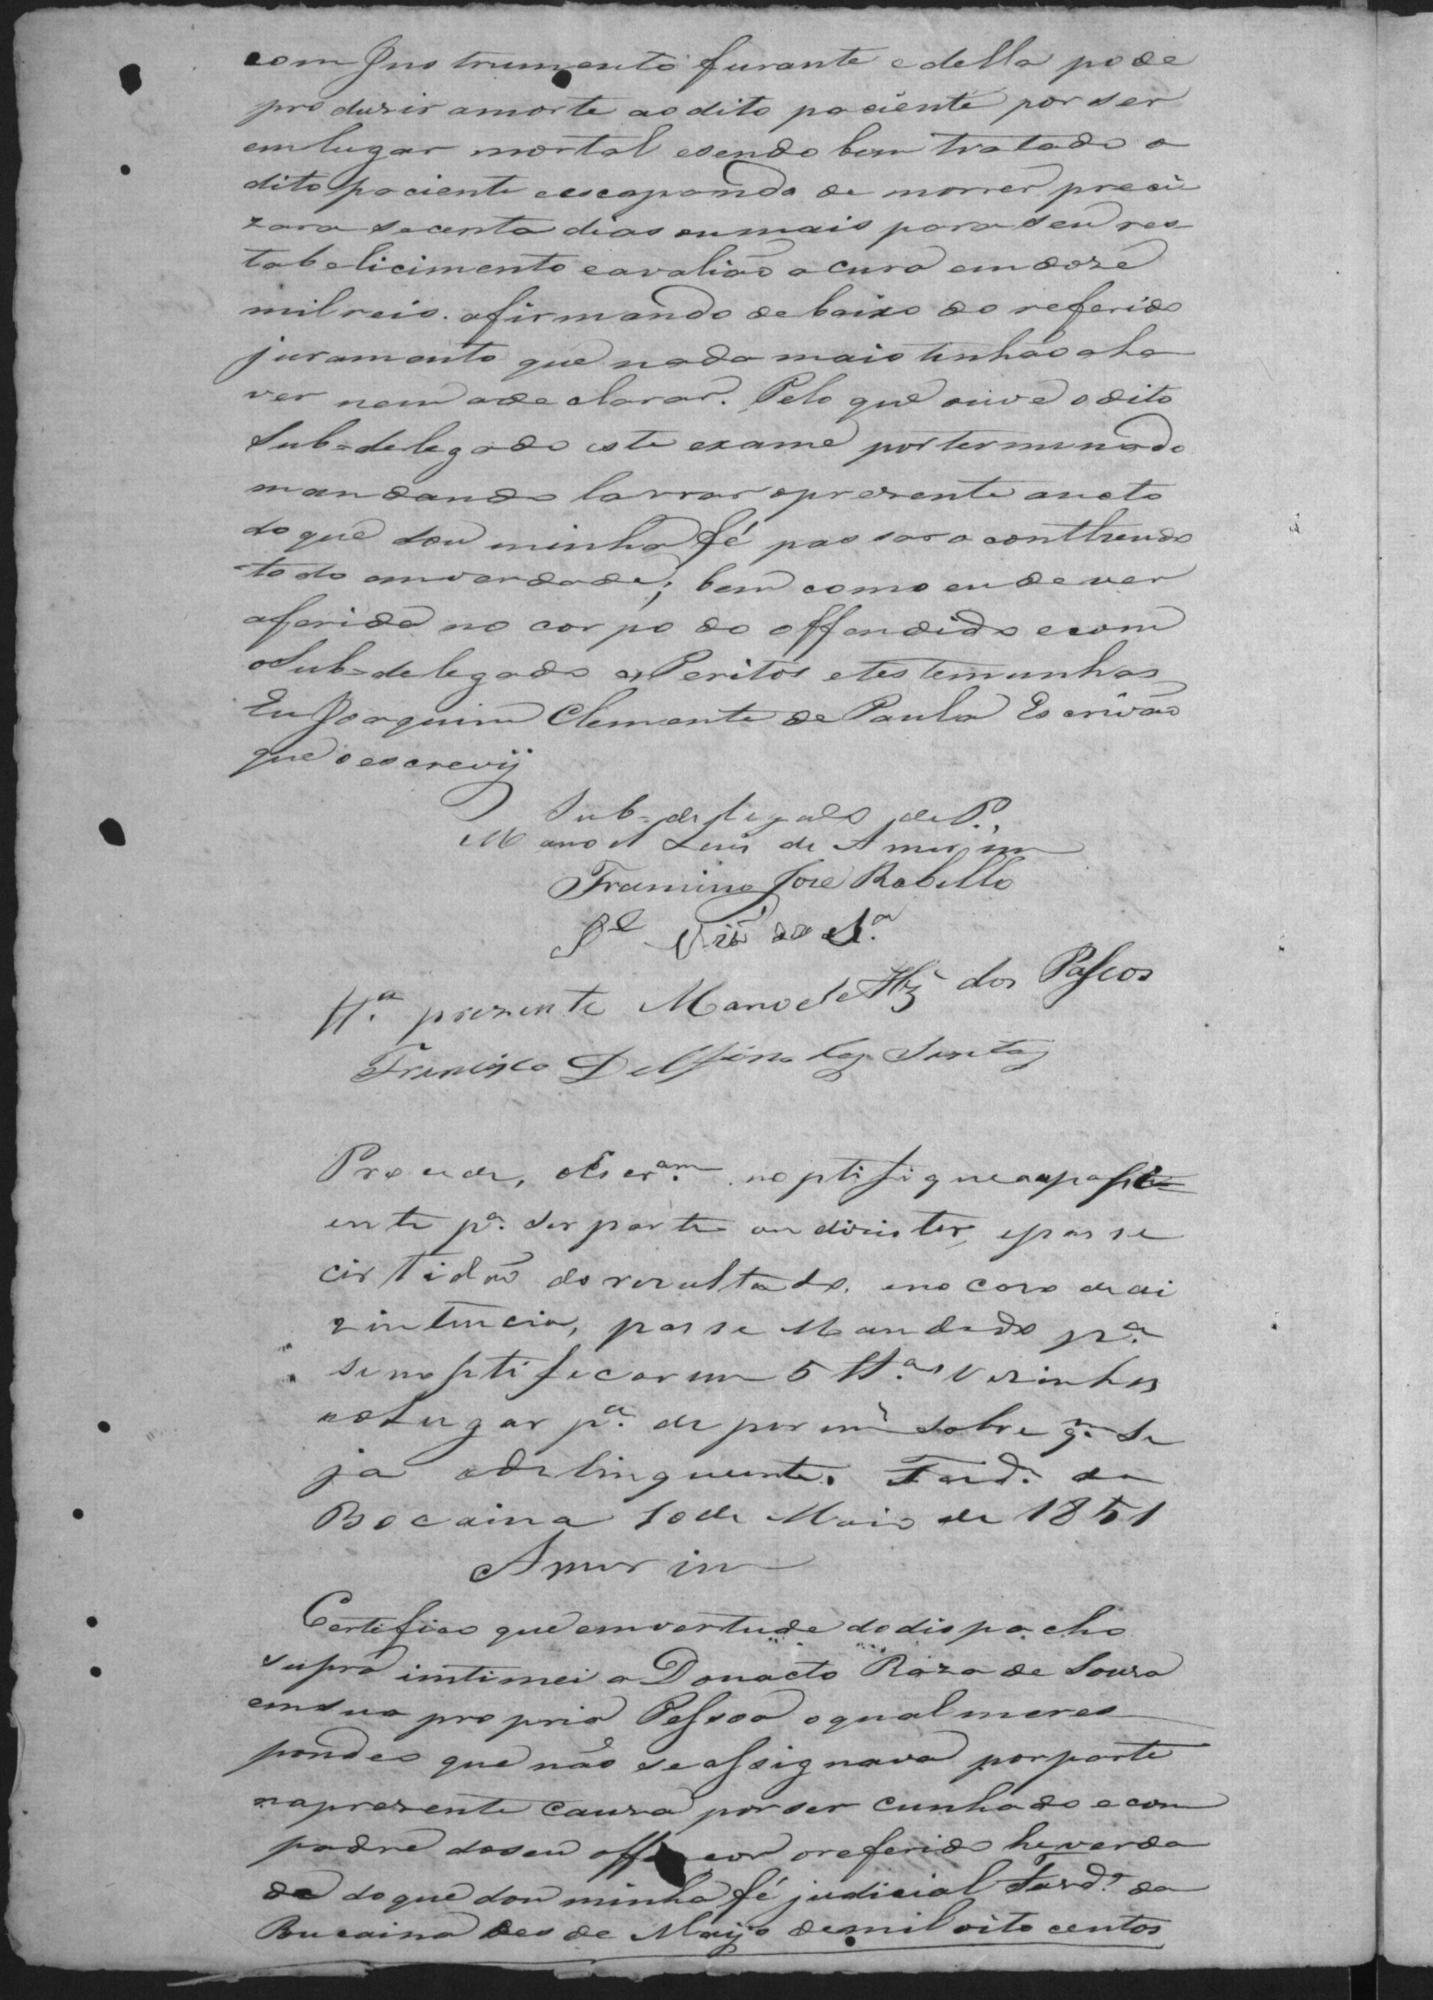 com Instrumento furante e della pode
produzir amorte aodito paciente porser
emlugar mortal esendo bem tratado o
dito paciente eescapando de morrer preci
zara secenta dias oumais para seu res
tabelicimento eavalião acura emdoze
milreis. afirmando debaixo do referido
juramento que nada mais tinhão aha
ver nem adeclarar. Pelo que ouve odito
Sub=delegado este exame porterminado
mandando lavrar opresente aucto
doque dou minha fé passara conthendo
todo anverdade; bem como eu de ver
aferida no corpo do offendido ecom
oSub=delegado os Peritos etestemunhas
Eu Joaquim Clemente de Paula Escrivão
que oescrevij
Sub=delegado de P.
Manoel Luis de Amorim
Framino José Rabello
dos Passos
Tt.ª prezente Manoel
Francisco Delfino dos Santos
Proceder, oEscr.am noptifique aopasi
ente pª. ser parte ou dizister, epasse
cirtidão dorezultado, eno cazo dedi
zintencia, passe Mandado pª.
senoptificarem 5 Tt.as vezinhas
aoLugar pª. deporem sobre q.m se
ja odelinquente. Fazd.ª da
Bocaina 10 de Maio de 1851
Amorim
Certifico que emvertude dodispacho
supra imtimei a Donacto Roza de Souza
emsua propria Pessoa oqual meres
pondeo que não seassignava porparte
naprezente cauza porser cunhado ecom
padre doseu offencor oreferido heverda
de doque dou minha fé judicial Fazd.ª da
Bucaina des de Mayo demiloitocentos